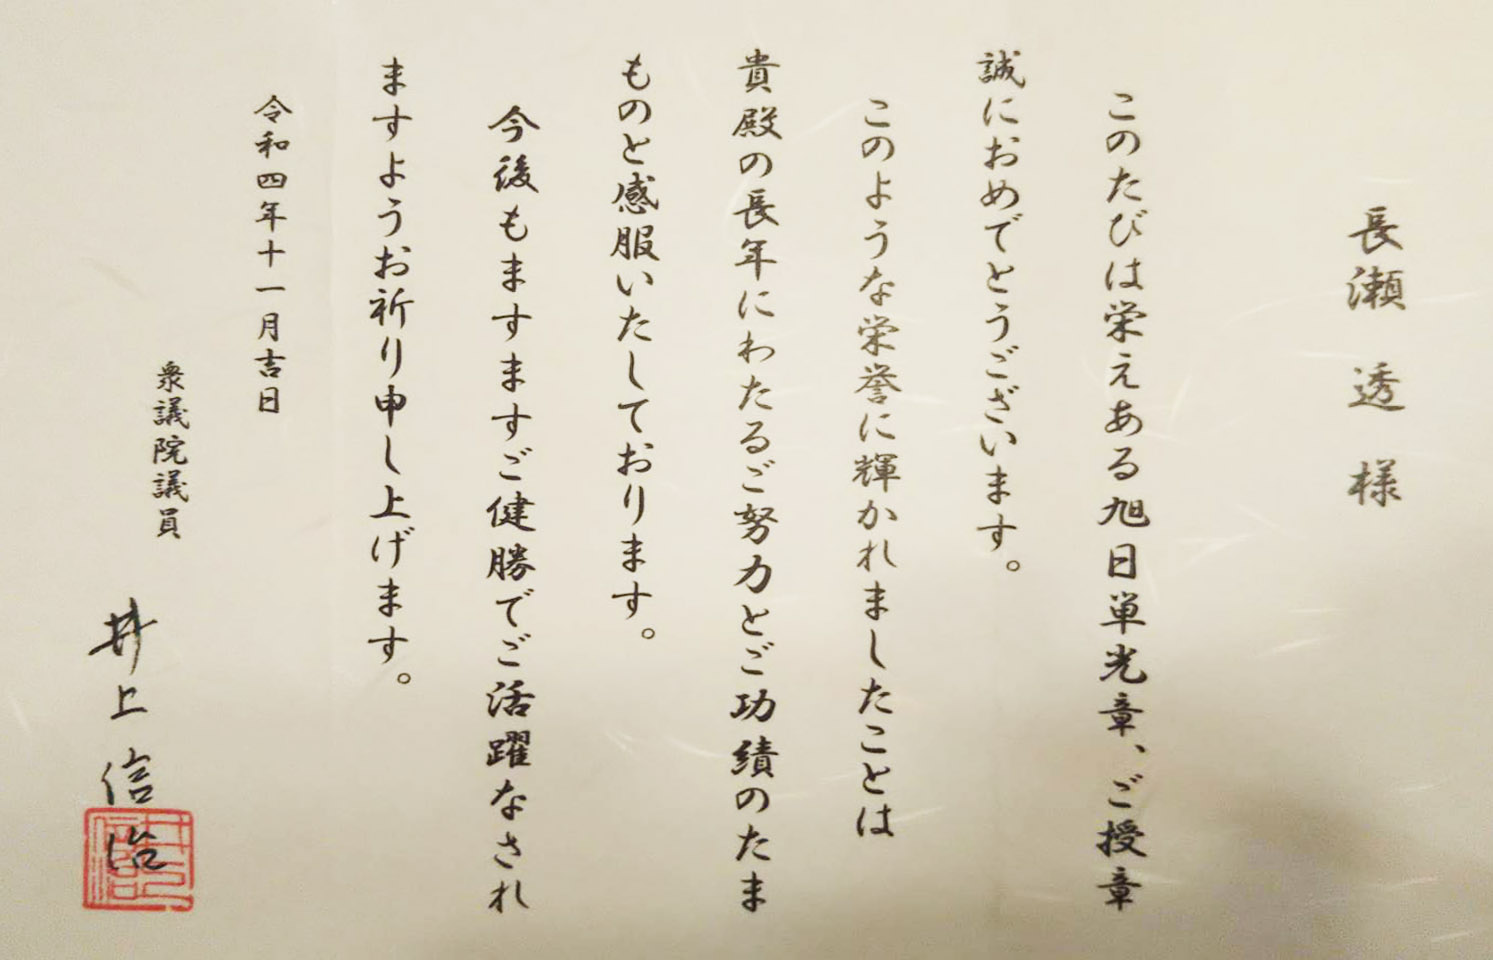 長瀬 透 様
このたびは栄えある旭日単光章、ご授章
誠におめでとうございます。
このような栄誉に輝かれましたことは
貴殿の長年にわたるご努力とご功績のたま
ものと感服いたしております。
今後もますますご健勝でご活躍なされ
ますようお祈り申し上げます。
令和四年十一月吉日
衆議院議員
井上信治